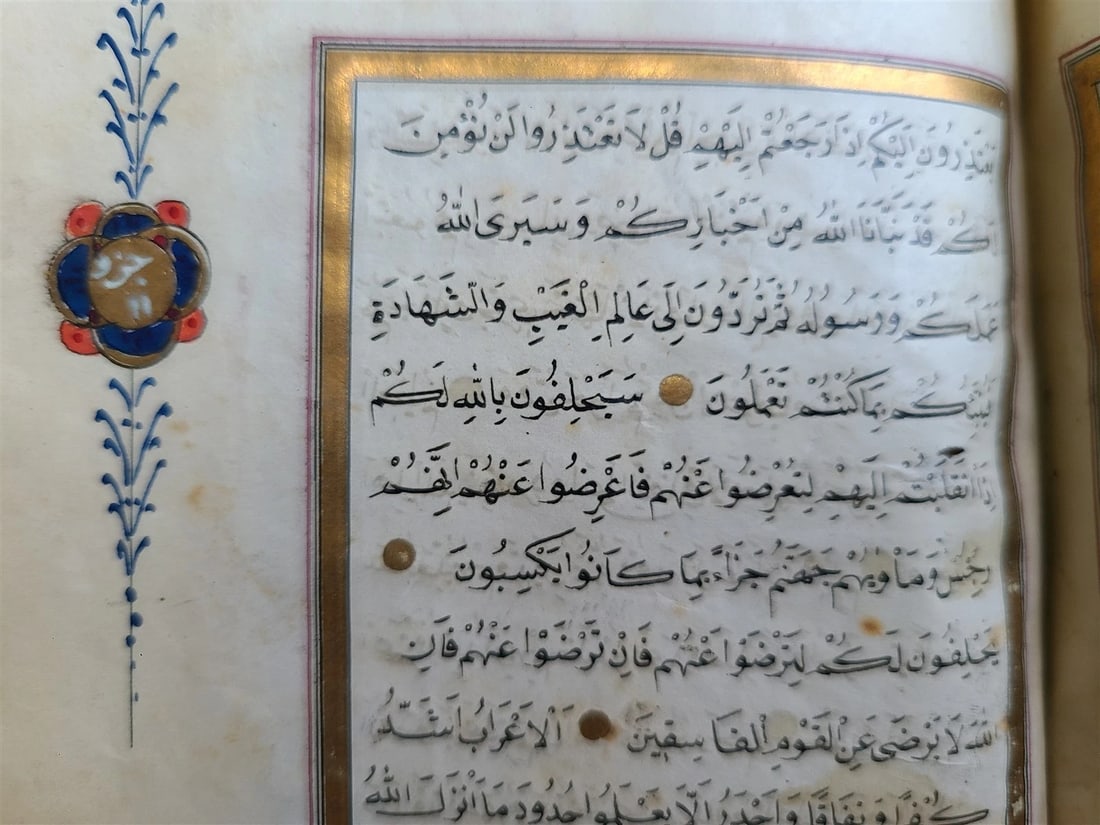 جزؤ
١١
يَعْتَذِرُونَ اِلَيْكُمْ اِذَا رَجَعْتُمْ اِلَيْهِمْ قُلْ لَا تَعْتَذِرُوا لَنْ نُؤْمِنَ
لَكُمْ قَدْ نَبَّاَنَا اللّٰهُ مِنْ اَخْبَارِكُمْ وَسَيَرَى اللّٰهُ
عَمَلَكُمْ وَرَسُولُهُ ثُمَّ تُرَدُّونَ اِلٰى عَالِمِ الْغَيْبِ وَالشَّهَادَةِ
فَيُنَبِّئُكُمْ بِمَا كُنْتُمْ تَعْمَلُونَ سَيَحْلِفُونَ بِاللّٰهِ لَكُمْ
اِذَا انْقَلَبْتُمْ اِلَيْهِمْ لِتُعْرِضُوا عَنْهُمْ فَاَعْرِضُوا عَنْهُمْ اِنَّهُمْ
رِجْسٌ وَمَاْوٰيهُمْ جَهَنَّمُ جَزَاءً بِمَا كَانُوا يَكْسِبُونَ
يَحْلِفُونَ لَكُمْ لِتَرْضَوْا عَنْهُمْ فَاِنْ تَرْضَوْا عَنْهُمْ فَاِنَّ
اللّٰهَ لَا يَرْضٰى عَنِ الْقَوْمِ الْفَاسِقِينَ اَلْاَعْرَابُ اَشَدُّ
كُفْرًا وَنِفَاقًا وَاَجْدَرُ اَلَّا يَعْلَمُوا حُدُودَ مَا اَنْزَلَ اللّٰهُ